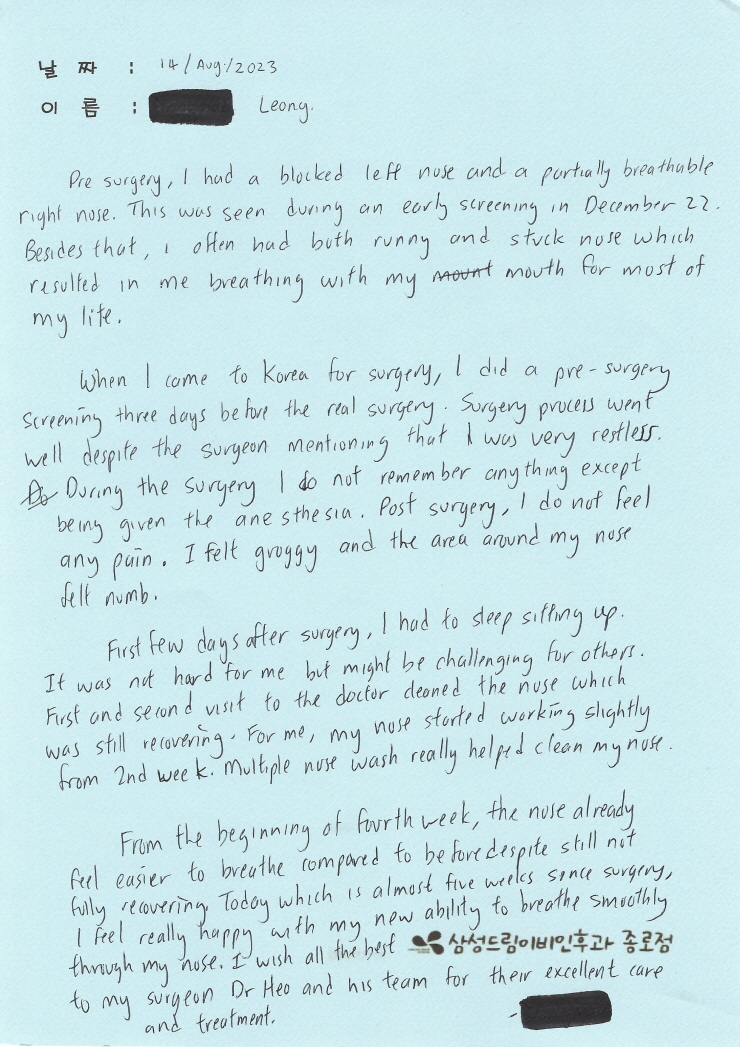 날 짜 : 14/Aug./2023
이 름 : Leong.
Pre surgery, I had a blocked left nose and a partially breathable
right nose. This was seen during an early screening in December 22.
Besides that, i often had both runny and stuck nose which
resulted in me breathing with my mount mouth for most of
my life.
When I came to Korea for surgery, I did a pre-surgery
screening three days before the real surgery. Surgery process went
well despite the surgeon mentioning that I was very restless.
During the surgery I do not remember anything except
being given the anesthesia. Post surgery, I do not feel
any pain. I felt groggy and the area around my nose
felt numb.
First few days after surgery, I had to sleep sitting up.
It was not hard for me but might be challenging for others.
First and second visit to the doctor cleaned the nose which
was still recovering. For me, my nose started working slightly
from 2nd week. Multiple nose wash really helped clean my nose.
From the beginning of fourth week, the nose already
feel easier to breathe compared to before despite still not
fully recovering. Today which is almost five weeks since surgery,
I feel really happy with my new ability to breathe smoothly
through my nose. I wish all the best 삼성드림이비인후과 종로점
to my surgeon Dr Heo and his team for their excellent care
and treatment.